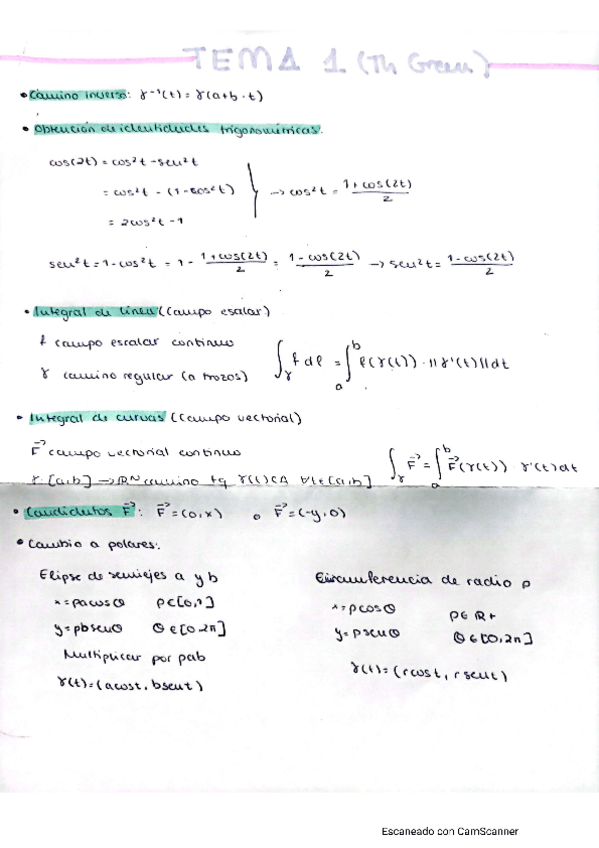 TEMA 1 (Th Green)
• Camino inverso: γ⁻¹(t) = γ(a+b-t)
• Obtención de identidades trigonométricas.
cos(2t) = cos²t - sen²t
= cos²t - (1-cos²t)
= 2cos²t - 1
→ cos²t = (1+cos(2t))/2
sen²t = 1 - cos²t = 1 - (1+cos(2t))/2 = (1-cos(2t))/2 → sen²t = (1-cos(2t))/2
• Integral de línea (Campo esalar)
f campo escalar continuo
γ camino regular (a trozos)
∫_γ f dl = ∫_a^b f(γ(t)) · ||γ'(t)|| dt
• Integral de curvas (Campo vectorial)
F⃗ campo vectorial continuo
γ [a,b] → ℝᴺ camino tq γ(t) ⊂ A ∀t ∈ [a,b]
∫_γ F⃗ = ∫_a^b F⃗(γ(t)) γ'(t) dt
• Candidatos F⃗: F⃗ = (0,x) o F⃗ = (-y,0)
• Cambio a polares:
Elipse de semiejes a y b
x = ρa cosθ ρ ∈ [0,1]
y = ρb senθ θ ∈ [0,2π]
Multiplicar por ρab
γ(t) = (a cost, b sent)
Circunferencia de radio ρ
x = ρ cosθ ρ ∈ ℝ+
y = ρ senθ θ ∈ [0,2π]
γ(t) = (r cos t, r sen t)
Escaneado con CamScanner